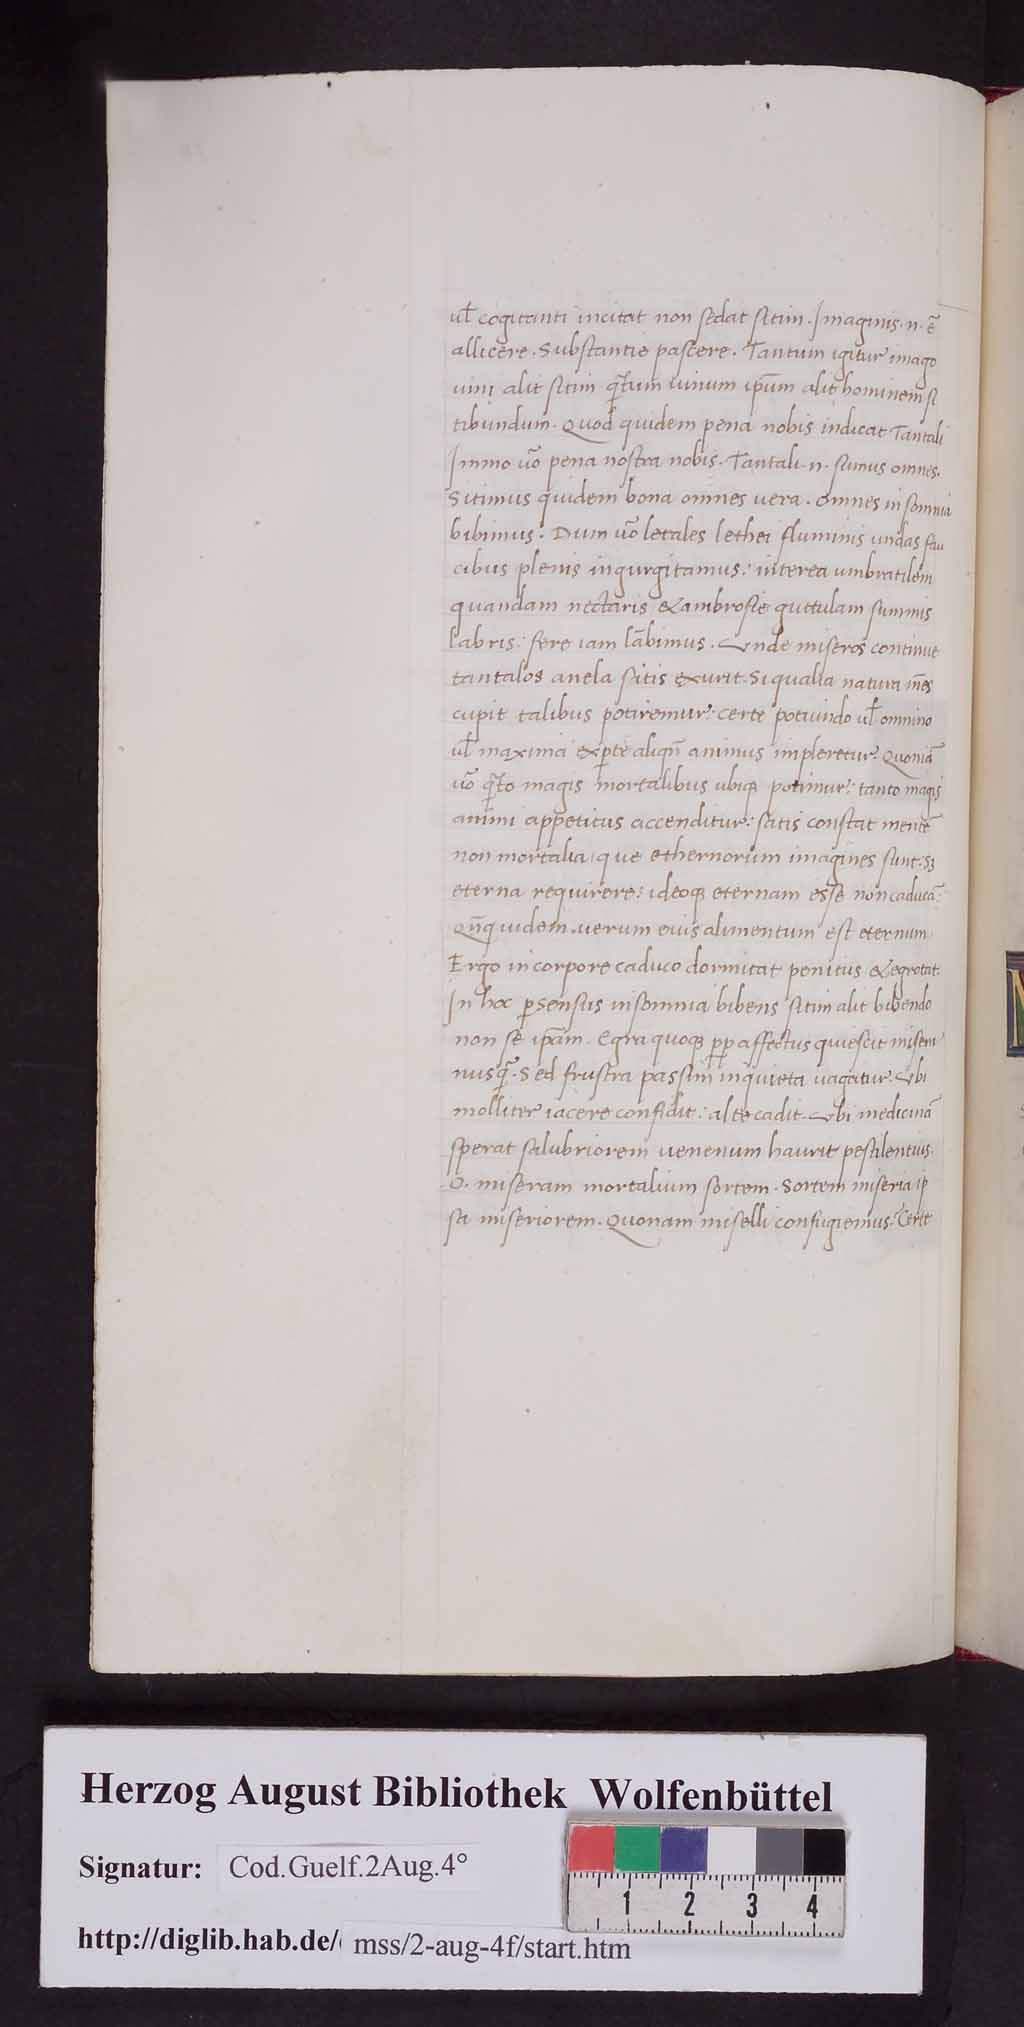 ul̄ cogitanti incitat non sedat sitim. Imaginis .n. ē
allicere. Substantie pascere. Tantum igitur imago
uini alit sitim q̄tum uinum ip̄um alit hominem si
tibundum. Quod quidem pena nobis indicat Tantali
Immo uō pena nostra nobis. Tantali .n. sumus omnes.
Sitimus quidem bona omnes uera. omnes insomnia
bibimus. Dum uō letales lethei fluminis undas fau
cibus plenis ingurgitamus: interea umbratilem
quandam nectaris & ambrosie guttulam summis
labris: fere iam lābimus. Unde miseros continue
tantalos anela sitis exurit. Si qualia natura m̄es
cupit talibus potiremur: certe potiundo ul̄ omnino
ul̄ maxima ex parte aliqn̄ animus impleretur. Quoniā
uō q̄to magis mortalibus ubiq; potimur: tanto magis
animi appetitus accenditur: satis constat mentē
non mortalia que ethernorum imagines sunt: sꝫ
eterna requirere: ideoq; eternam esse non caducā:
Qn̄quidem uerum eius alimentum est eternum
Ergo in corpore caduco dormitat penitus & egrotat.
In hoc ꝑ sensus insomnia bibens sitim alit bibendo
non se ip̄am. Egra quoq; pp affectus quiescit misera
nusq̄. Sed frustra passim inquieta uagatur. Ubi
molliter iacere confidit: alte cadit. Ubi medicinā
sperat salubriorem uenenum haurit pestilentius.
O. miseram mortalium sortem. Sortem miseria ip
sa miseriorem. Quonam miselli confugiemus. Certe
Herzog August Bibliothek Wolfenbüttel
Signatur: Cod.Guelf.2Aug.4°
1 2 3 4
http://diglib.hab.de/ mss/2-aug-4f/start.htm